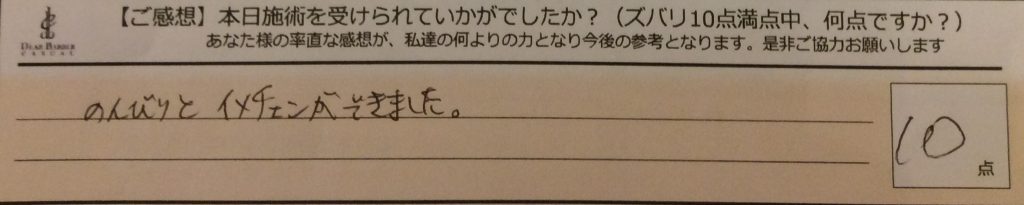 【ご感想】本日施術を受けられていかがでしたか？（ズバリ10点満点中、何点ですか？）
あなた様の率直な感想が、私達の何よりの力となり今後の参考となります。是非ご協力お願いします
DEAR BARBER
CASUAL
のんびりと イメチェンができました。
10
点